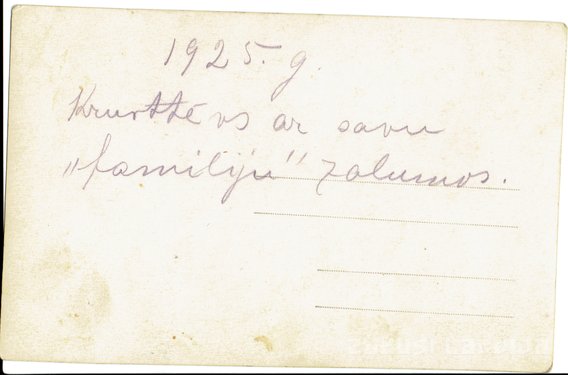 1925. g.
Krusttēvs ar savu
„familiju" zaļumos.